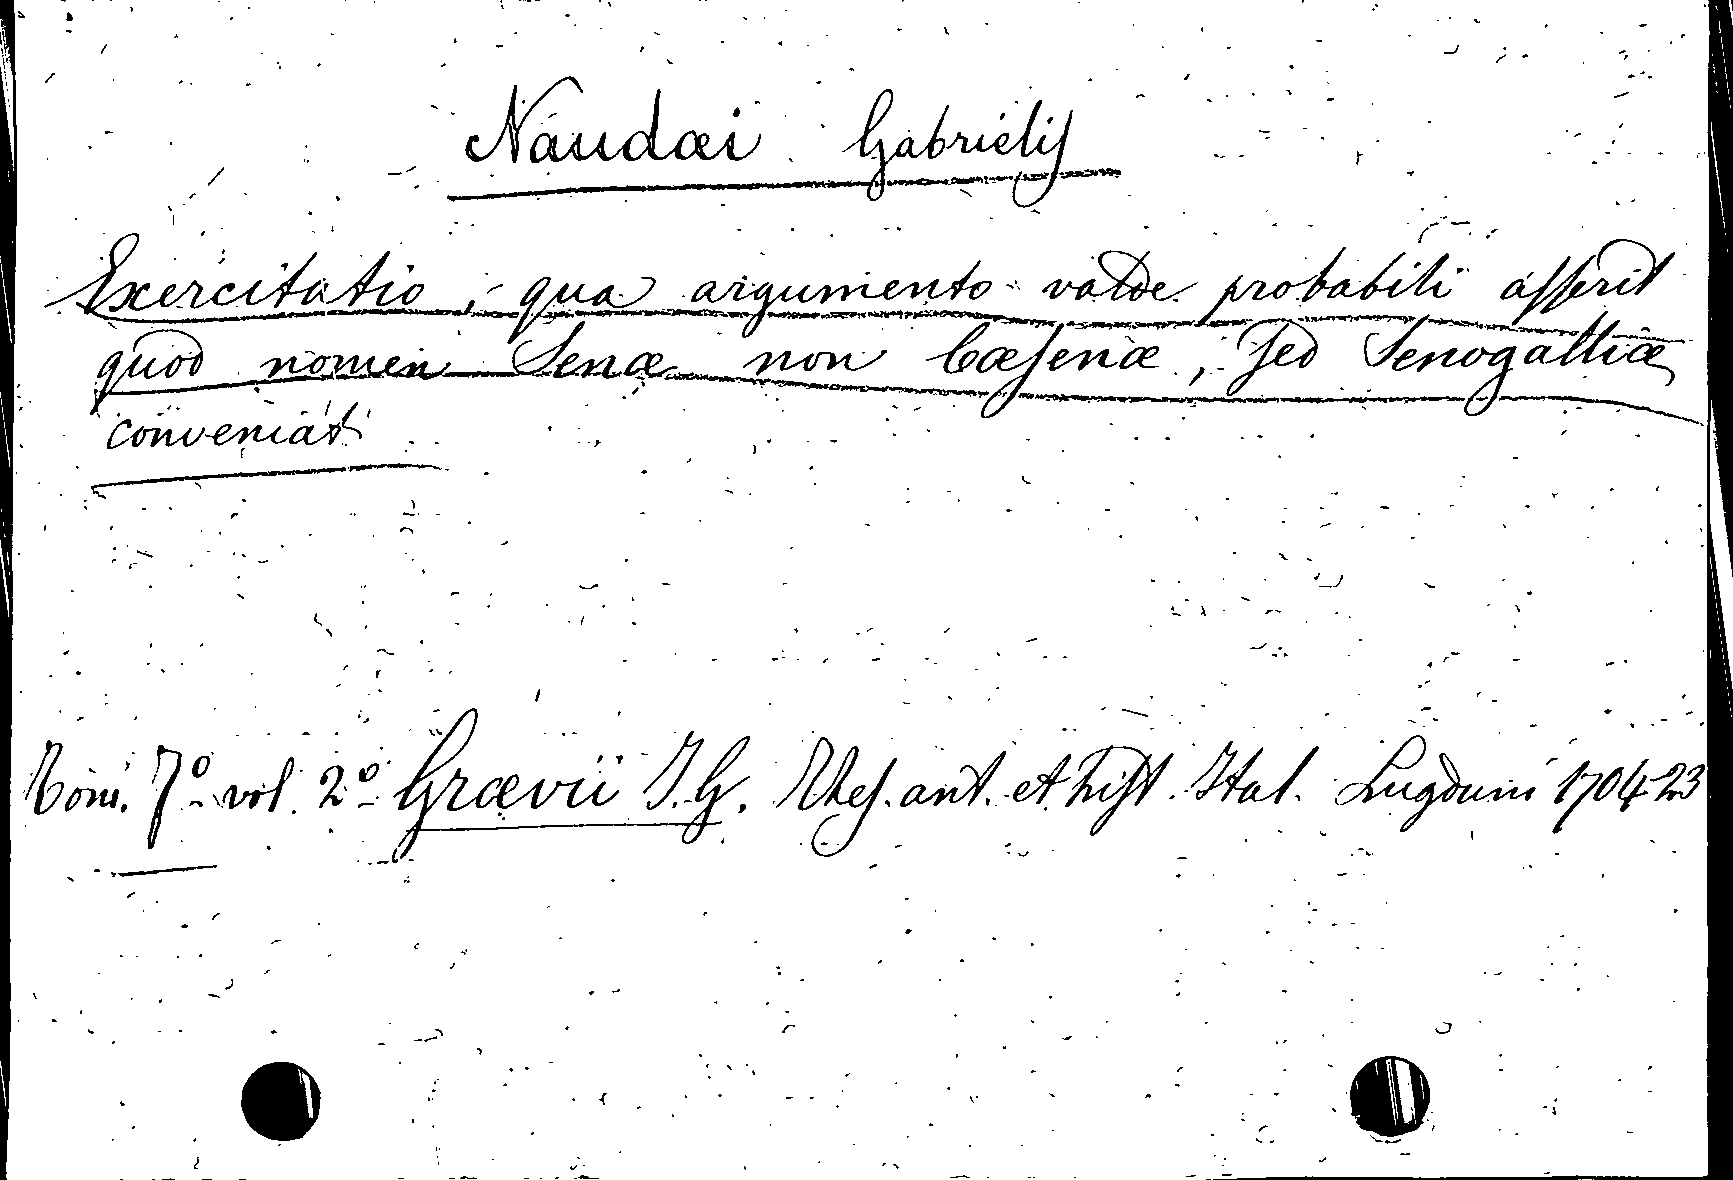 Naudæi Gabrielis
Exercitatio, qua argumento valde probabili asserit
quod nomen Senæ non Cæsenæ, sed Senogalliæ
conveniat
Tom. 7º vol. 2º Grævii J. G. Thes. ant. et hist. Ital. Lugduni 1704-23